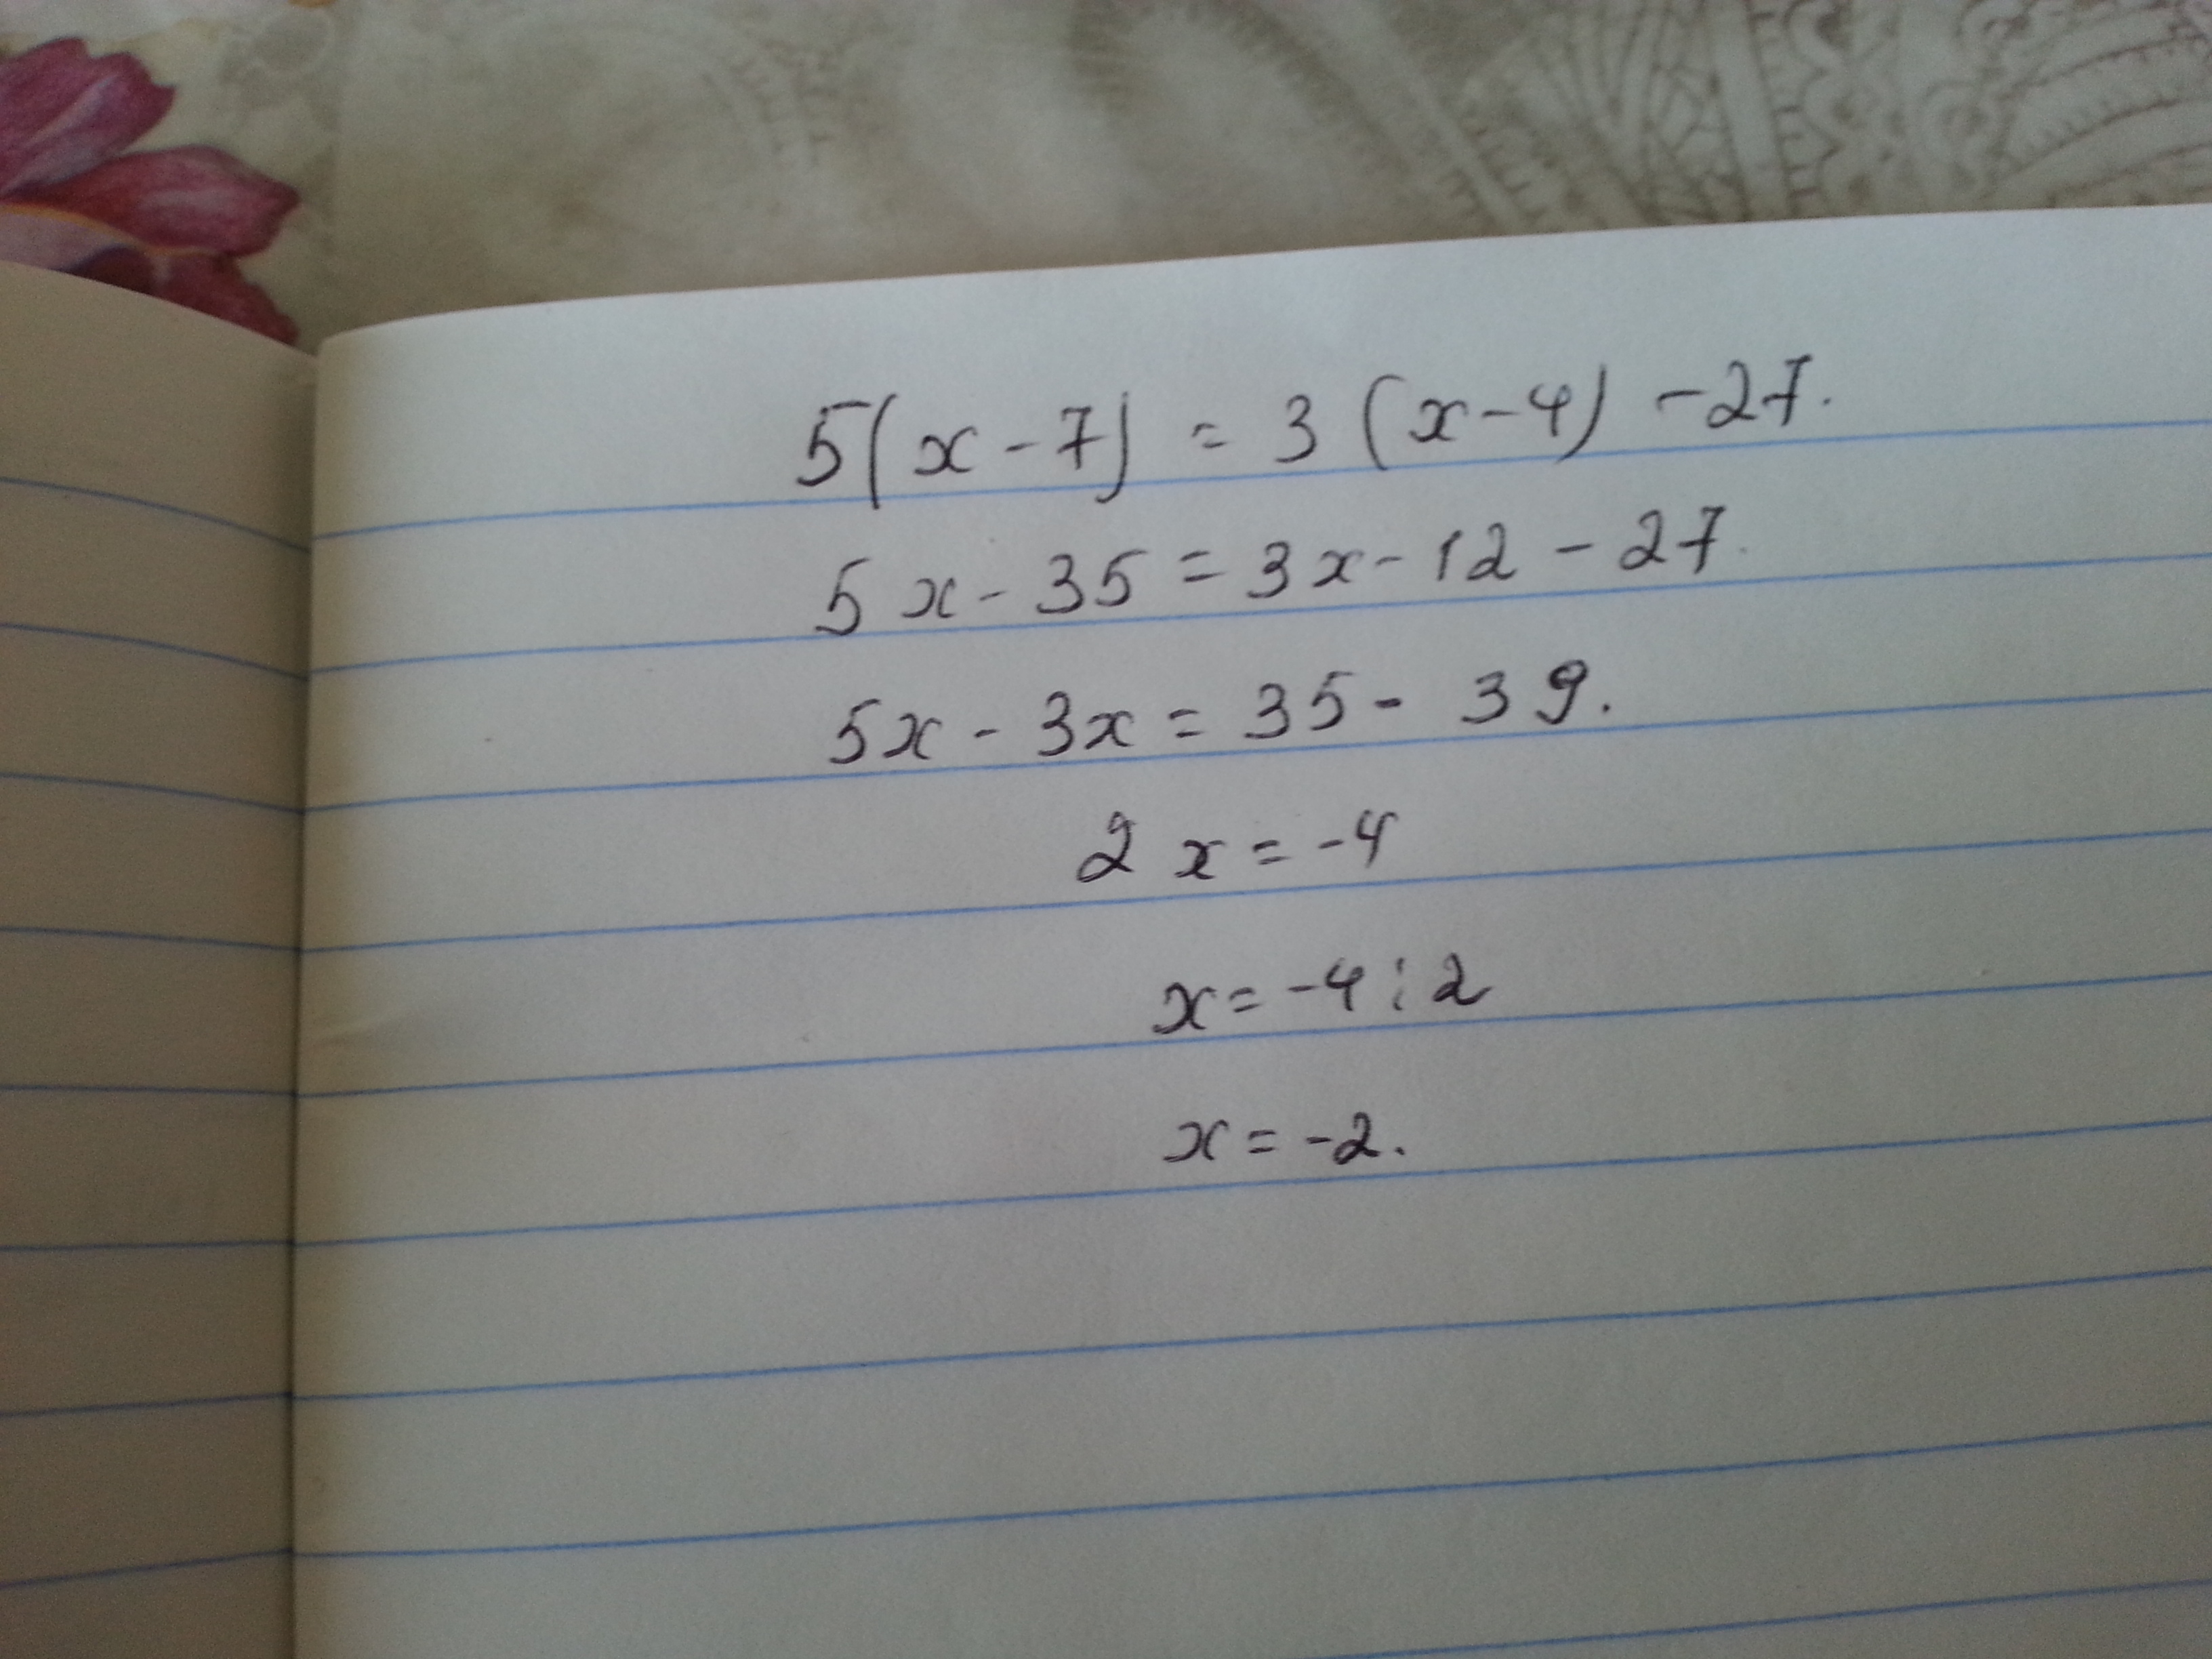 5(x-7) = 3(x-4) -27.
5x-35=3x-12-27.
5x-3x=35-39.
2x=-4
x=-4:2
x=-2.